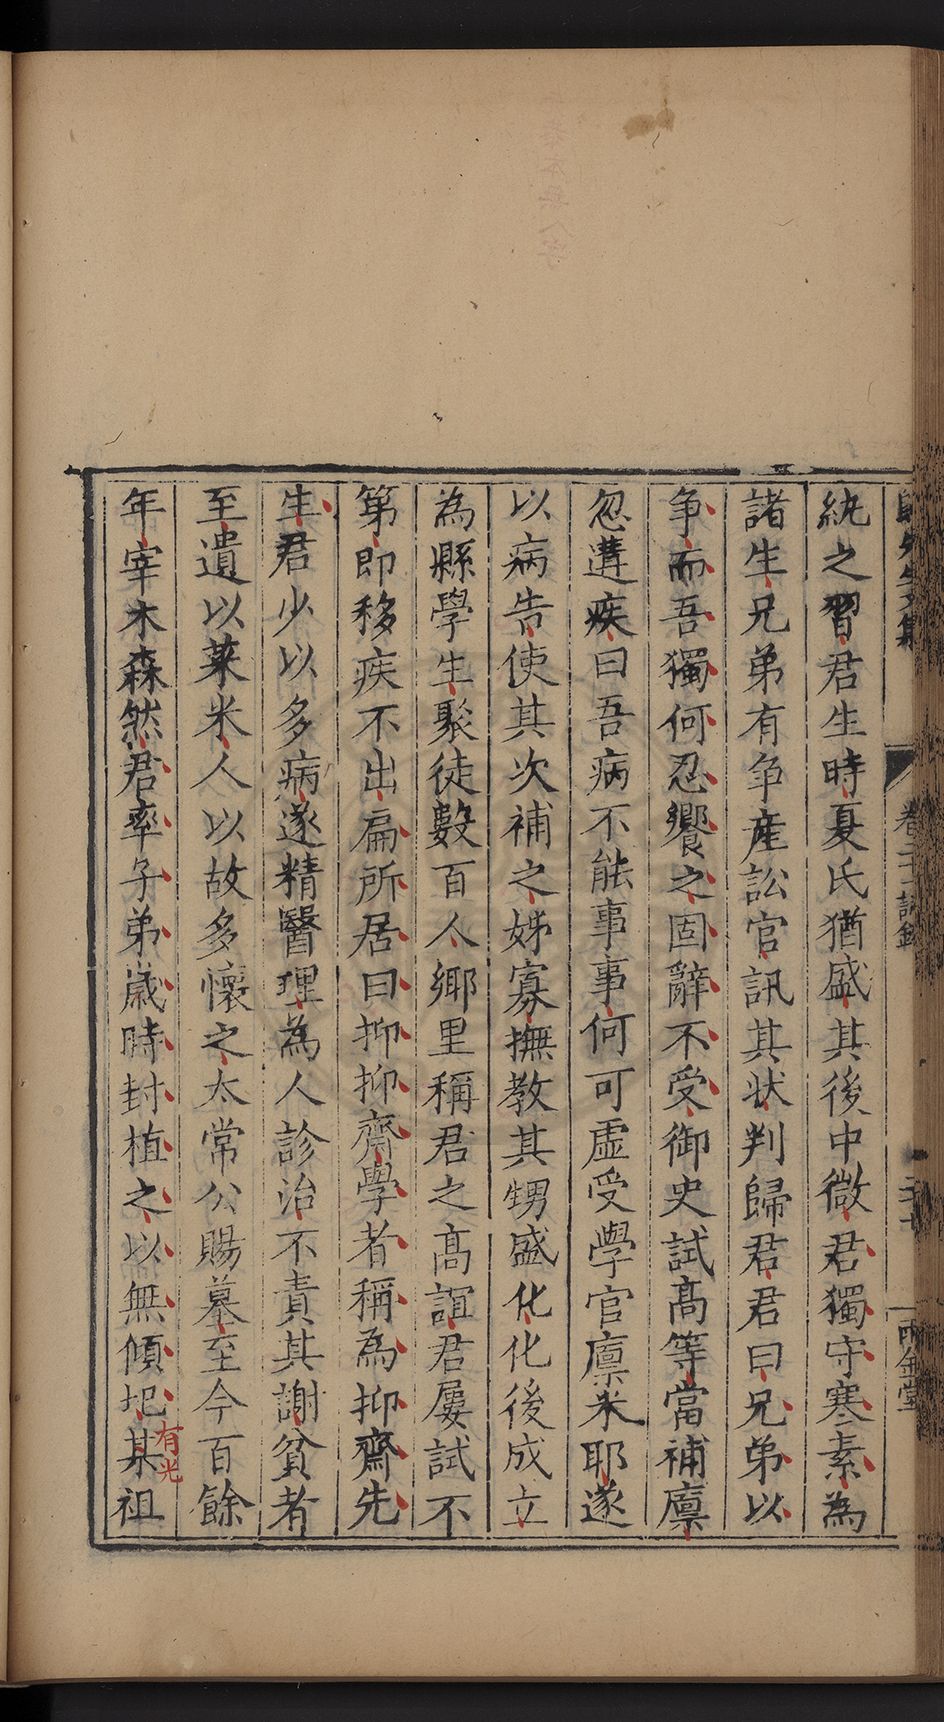 紈之習君生時夏氏猶盛其後中微君獨守寒素為
諸生兄弟有爭産訟官訊其狀判歸君君曰兄弟以
爭而吾獨何忍饗之固辭不受御史試高等當補廩
忽遘疾曰吾病不能事事何可虛受學官廩米耶遂
以病告使其次補之姊寡撫教其甥盛化化後成立
為縣學生聚徒數百人鄉里稱君之高誼君屢試不
第即移疾不出扁所居曰抑抑齋學者稱為抑齋先
生君少以多病遂精醫理為人診治不責其謝貧者
至遺以藥米人以故多懷之太常公賜墓至今百餘
年宰木森然君率子弟歲時封植之以無傾圮某祖
有光
卷二十
雨金堂